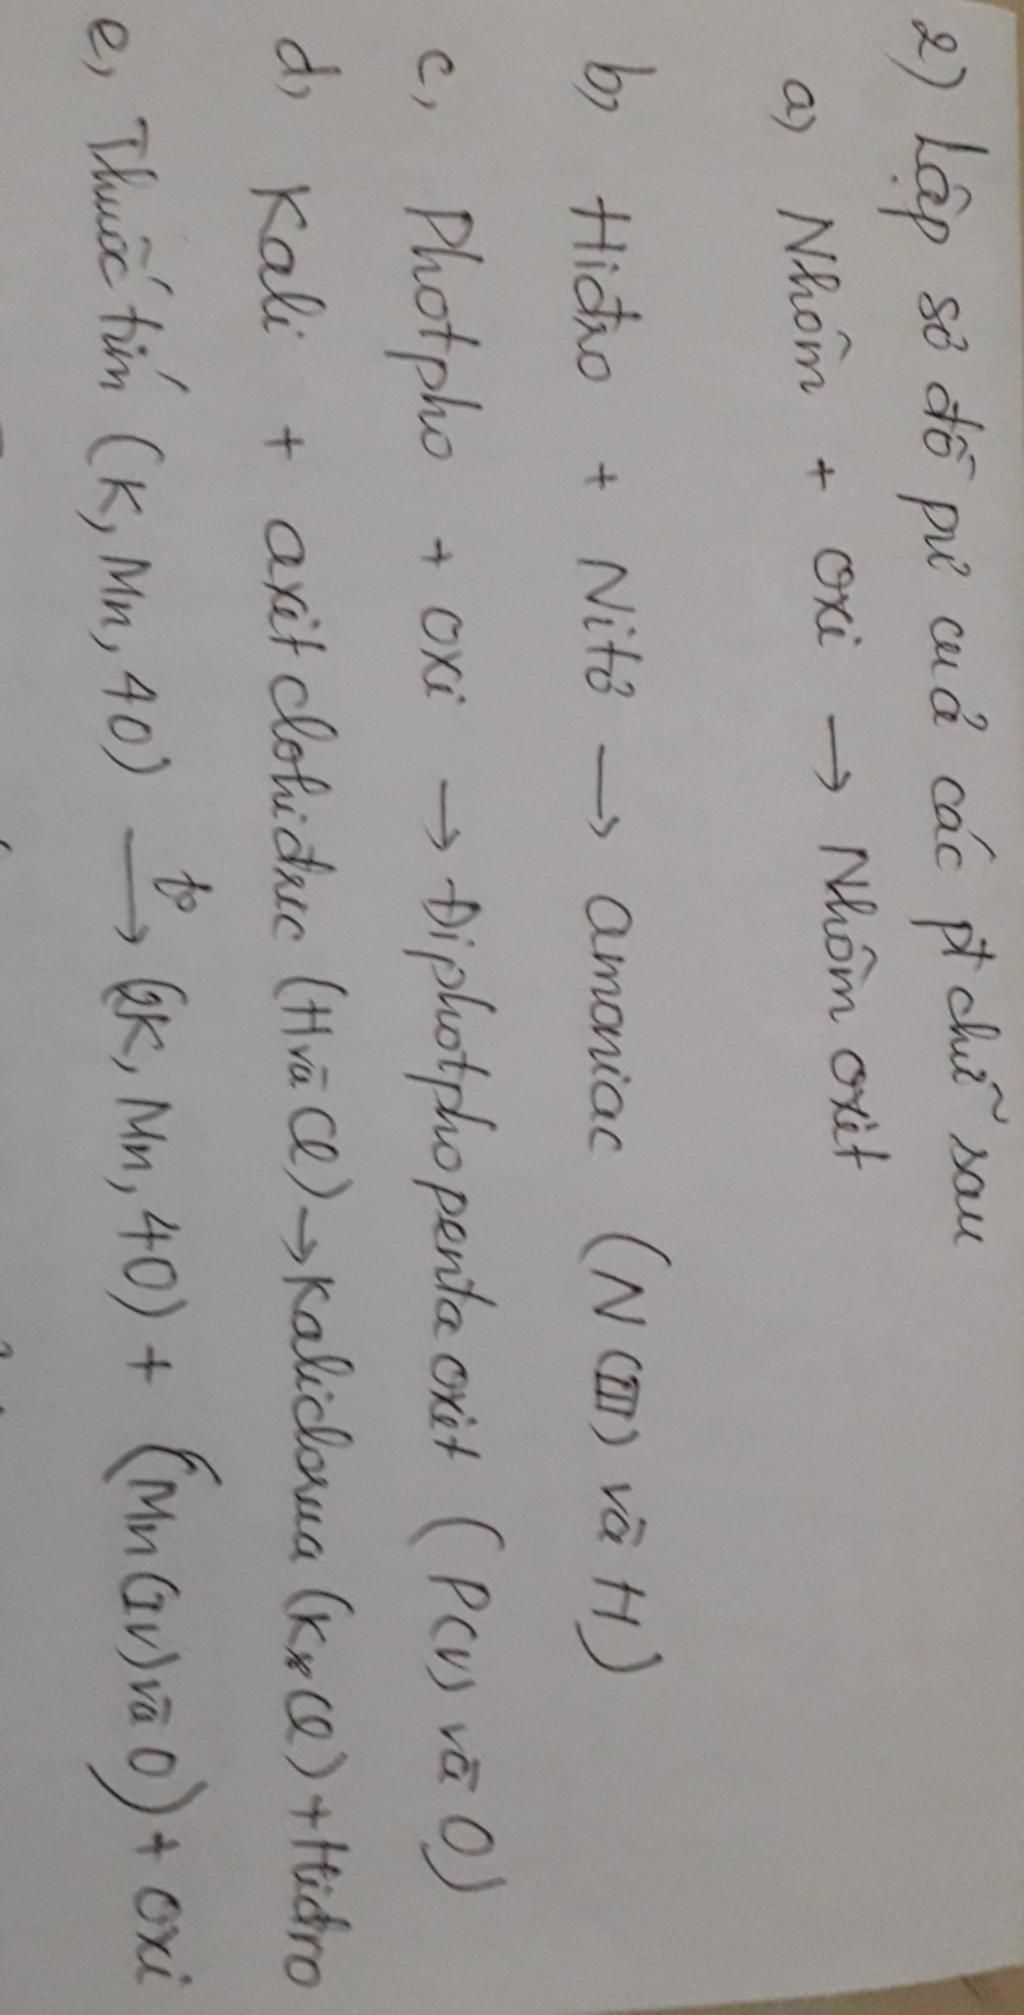 2) Lập sơ đồ pư cuả các pt chữ sau
a) Nhôm + oxi → Nhôm oxit
b, Hiđro + Nitơ → amoniac (N (III) và H)
c, Photpho + oxi → Điphotpho pentaoxit (P(V) và O)
d, Kali + axit clohiđric (H và Cl) → Kaliclorua (K và Cl) + Hiđro
e, Thuốc tím (K, Mn, 4O) →t° (2K, Mn, 4O) + (Mn(IV) và O) + oxi